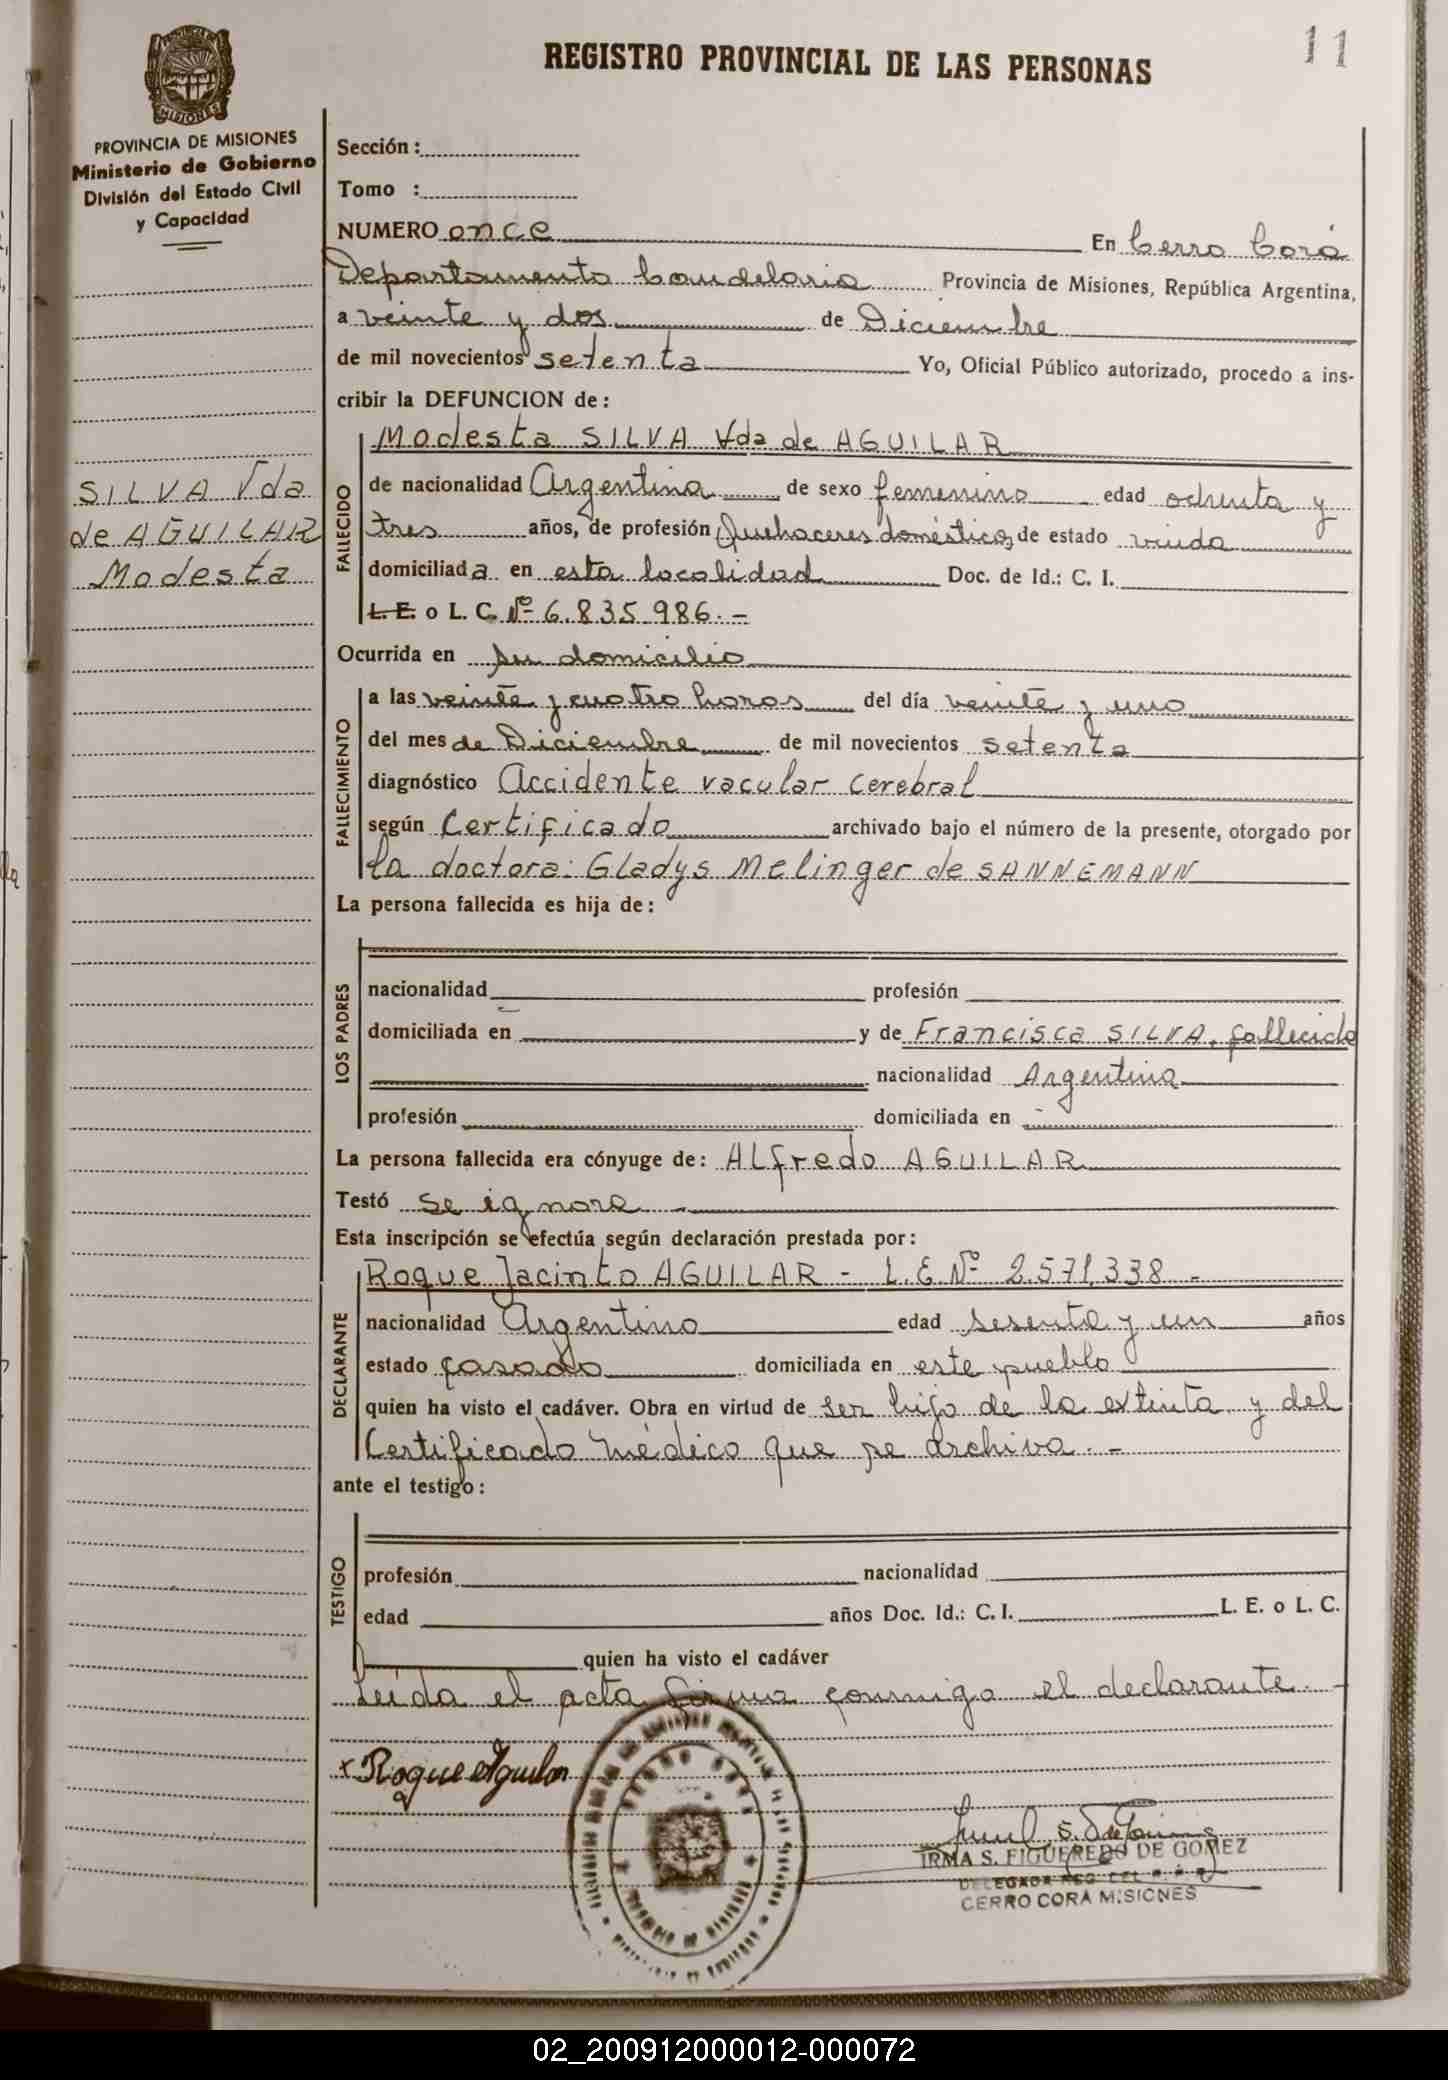 11
REGISTRO PROVINCIAL DE LAS PERSONAS
MISIONES
PROVINCIA DE MISIONES
Ministerio de Gobierno
División del Estado Civil
y Capacidad
SILVA Vda
de AGUILAR
Modesta
Sección :
Tomo :
NUMERO once En Cerro Corá
Departamento Candelaria Provincia de Misiones, República Argentina,
a veinte y dos de Diciembre
de mil novecientos setenta Yo, Oficial Público autorizado, procedo a ins-
cribir la DEFUNCION de :
FALLECIDO
Modesta SILVA Vda de AGUILAR
de nacionalidad Argentina de sexo femenino edad ochenta y
tres años, de profesión Quehaceres domésticos de estado viuda
domiciliada en esta localidad Doc. de Id.: C. I.
L. E. o L. C. Nº 6.835.986.-
Ocurrida en su domicilio
FALLECIMIENTO
a las veinte y cuatro horas del día veinte y uno
del mes de Diciembre de mil novecientos setenta
diagnóstico Accidente vacular cerebral
según Certificado archivado bajo el número de la presente, otorgado por
la doctora: Gladys Melinger de SANNEMANN
La persona fallecida es hija de :
LOS PADRES
nacionalidad profesión
domiciliada en y de Francisca SILVA, fallecida
nacionalidad Argentina
profesión domiciliada en
La persona fallecida era cónyuge de: ALfredo AGUILAR
Testó se ignora.
Esta inscripción se efectúa según declaración prestada por :
DECLARANTE
Roque Jacinto AGUILAR - L.E.Nº 2.571,338 -
nacionalidad Argentino edad sesenta y un años
estado casado domiciliada en este pueblo
quien ha visto el cadáver. Obra en virtud de ser hijo de la extinta y del
Certificado médico que se archiva.-
ante el testigo :
TESTIGO
profesión nacionalidad
edad años Doc. Id.: C. I. L. E. o L. C.
quien ha visto el cadáver
Leída el acta firma conmigo el declarante.-
x Roque Aguilar
IRMA S. FIGUEREDO DE GOMEZ
DELEGADA REG DEL
CERRO CORA MISIONES
02_200912000012-000072